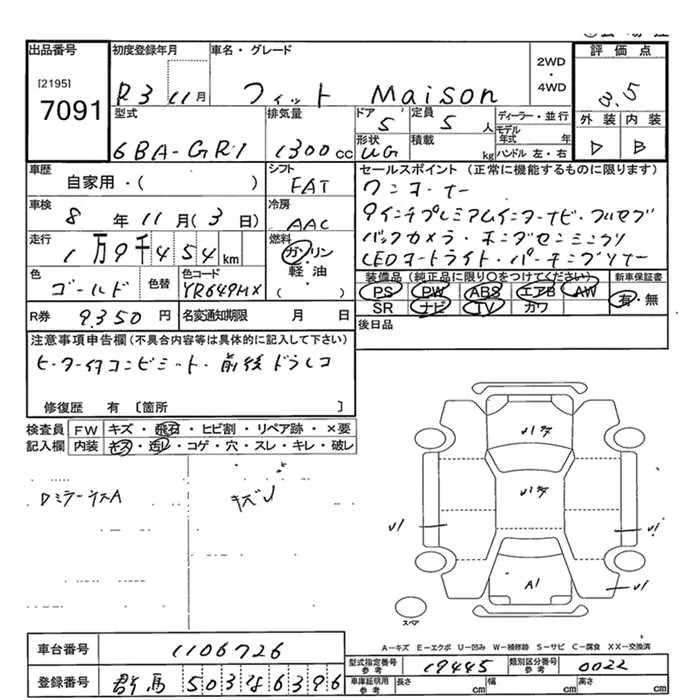 出品番号
[2195]
7091
初度登録年月
R3 11月
車名・グレード
フィット Maison
2WD
・
4WD
評価点
3.5
外装 内装
D B
型式
6BA-GR1
排気量
1300cc
ドア
5
定員
5人
形状
UG
積載
kg
ディーラー・並行
モデル年式 年
ハンドル 左・右
車歴
自家用・( )
シフト
FAT
セールスポイント (正常に機能するものに限ります)
ワンオーナー
9インチプレミアムインターナビ・フルセグ
バックカメラ・ホンダセンシング
LEDヘッドライト・パーキングソナー
車検
8年11月(3日)
冷房
AAC
走行
1万9千454km
燃料
ガソリン
軽油・
( )
色
ゴールド
色替
色コード
YR649MX
装備品(純正品に限り○をつけてください)
PS PW ABS エアB AW
SR ナビ TV カワ
新車保証書
有・無
R券 9350円
名変通知期限 月 日
後日品
注意事項申告欄(不具合内容等は具体的に記入して下さい)
ヒーター付コンビミット・前後ドラレコ
修復歴 有 〔箇所 〕
検査員 FW キズ・飛石・ヒビ割・リペア跡・×要
記入欄 内装 キズ・汚レ・コゲ・穴・スレ・キレ・破レ
DミラーキズA
キズU
U1
U1
U1
A1
スペア
A-キズ E-エクボ U-凹み W-補修跡 S-サビ C-腐食 XX-交換済
車台番号 1106726
型式指定番号 参考 19445
類別区分番号 参考 0022
登録番号 群馬 503 み6396
車庫証明用 参考 長さ cm 幅 cm 高さ cm